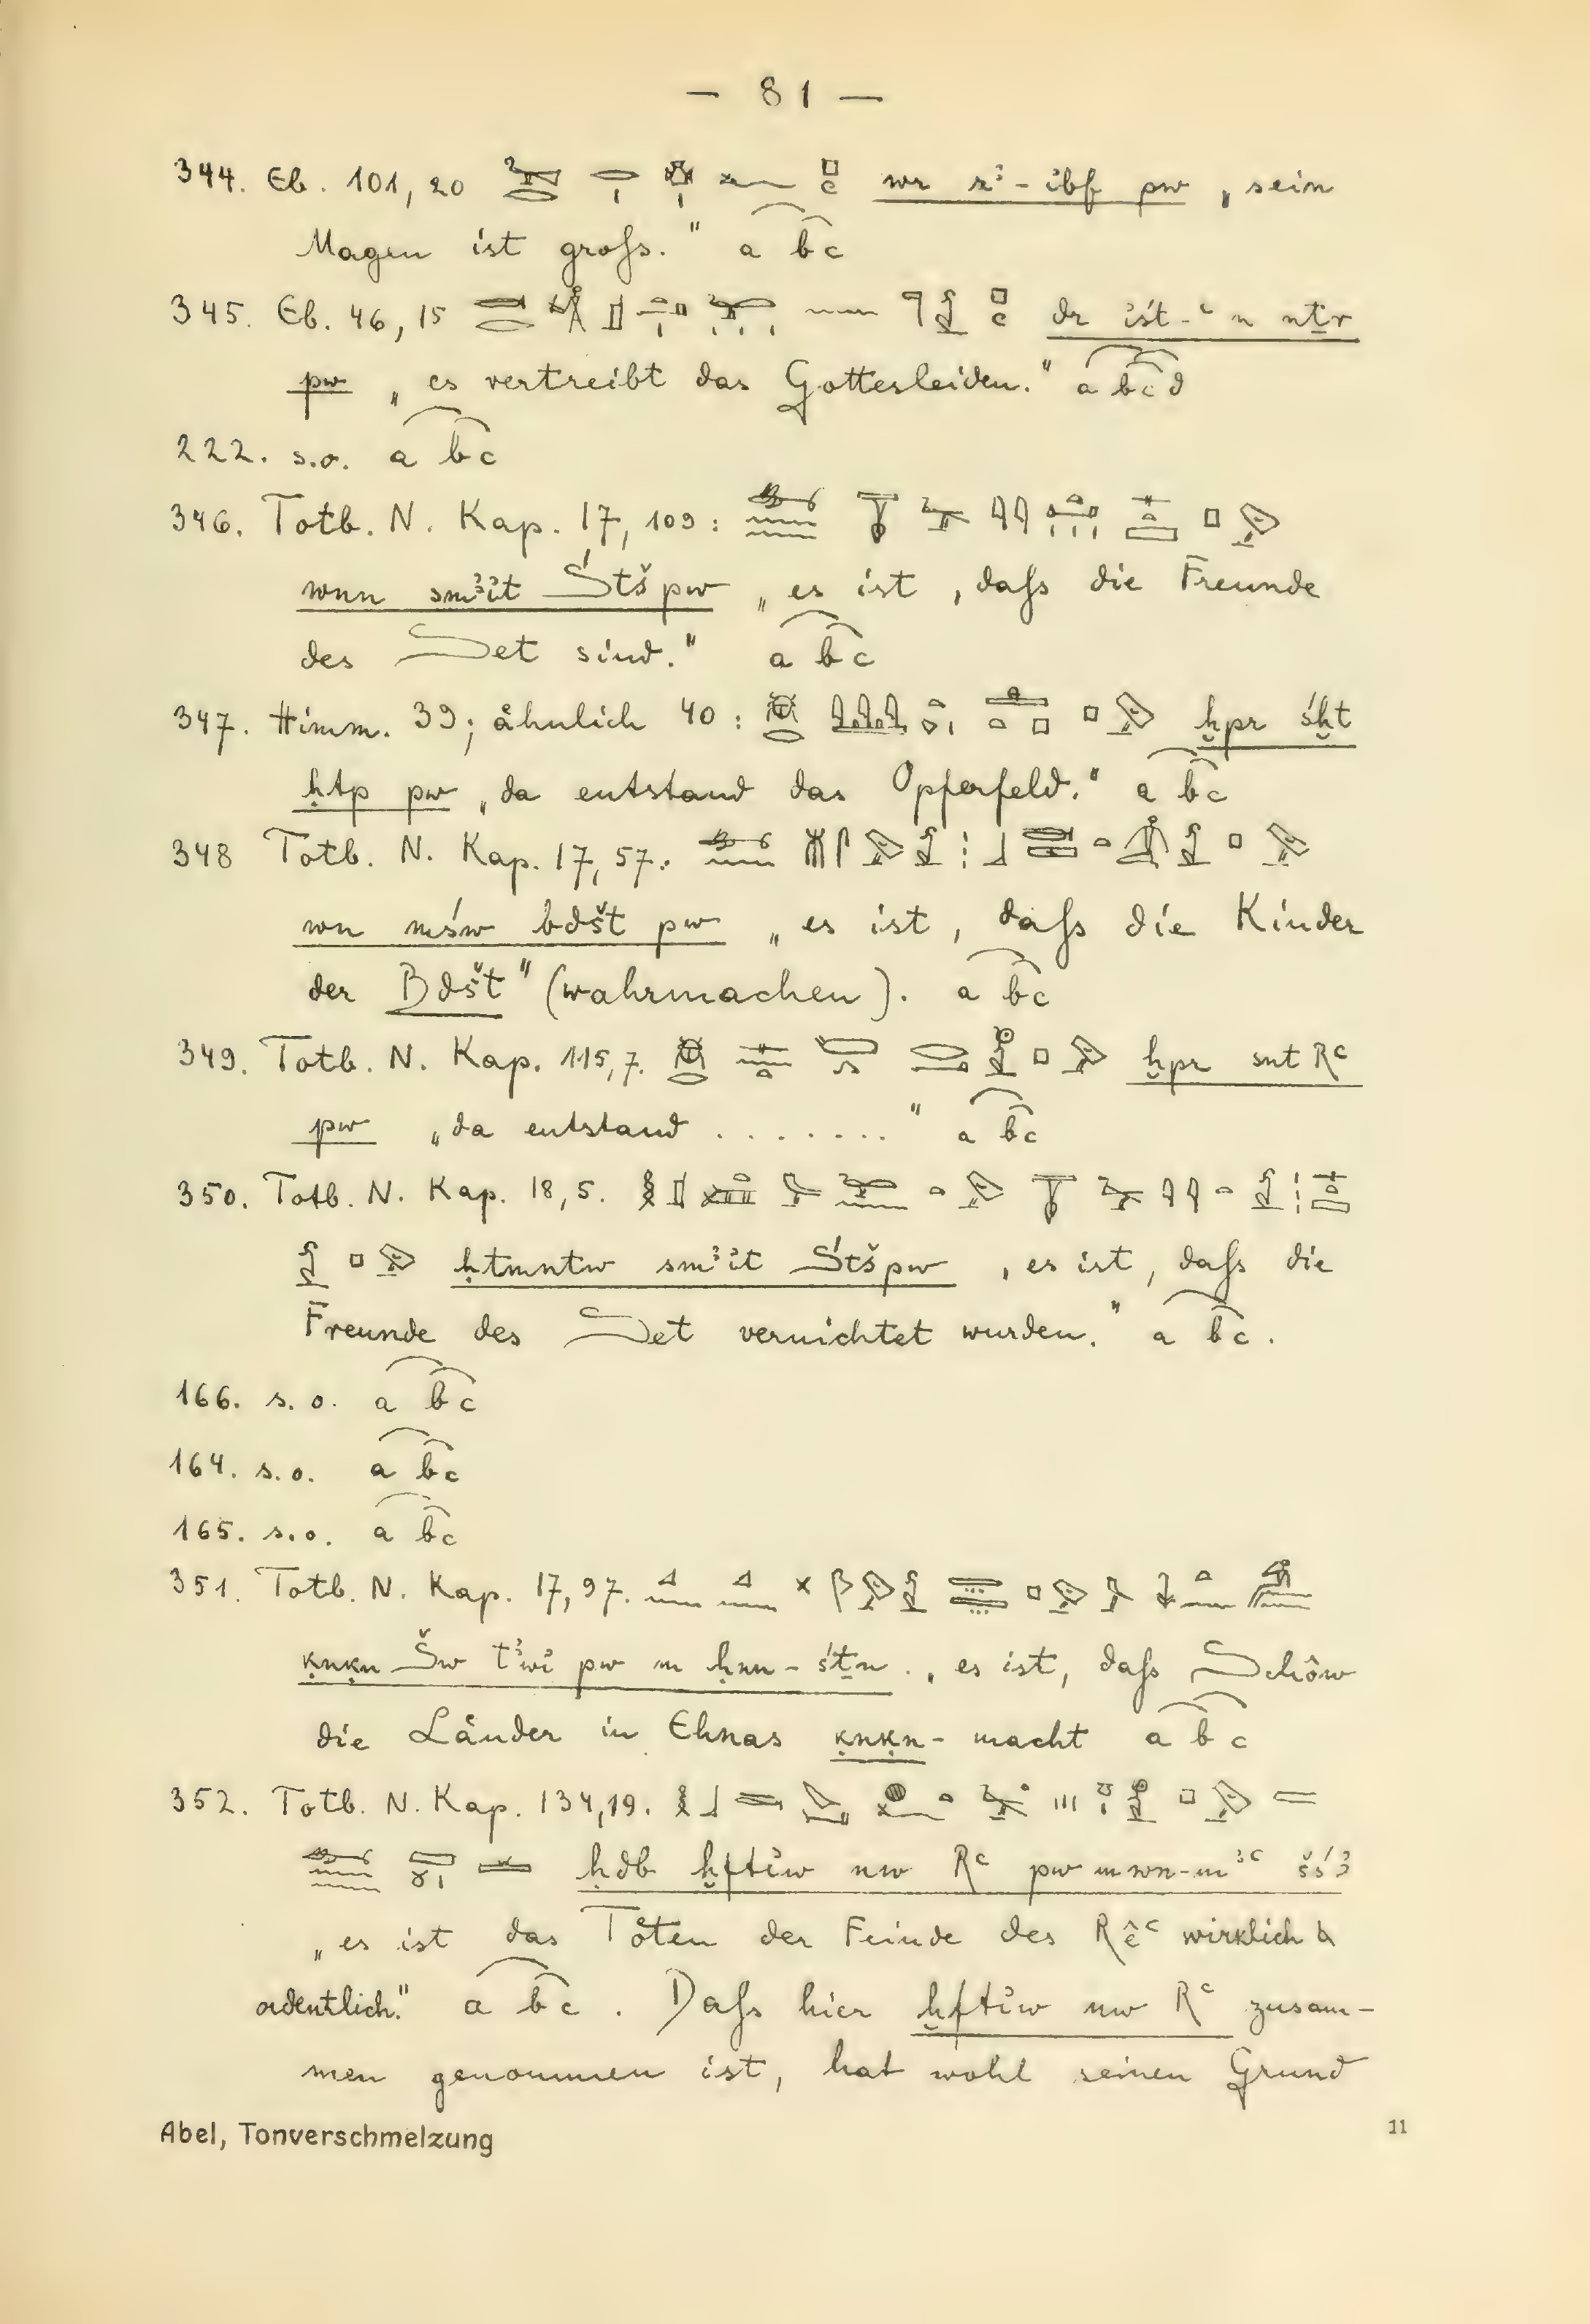 — 81 —
344. Eb. 101, 20 wr rꜣ-ibf pw „sein
Magen ist groſs.“ a b c
345. Eb. 46, 15 dr ꜣist-ꜥ n nṯr
pw „es vertreibt das Gottesleiden.“ a b c d
222. s. o. a b c
346. Totb. N. Kap. 17, 109:
wnn smꜣꜣit Śtš pw „es ist, daſs die Freunde
des Set sind.“ a b c
347. Himm. 39; ähnlich 40: ḫpr śḫt
ḥtp pw „da entstand das Opferfeld.“ a b c
348 Totb. N. Kap. 17, 57:
wn mśw bdšt pw „es ist, daſs die Kinder
der Bdšt“ (wahrmachen). a b c
349. Totb. N. Kap. 115, 7. ḫpr snt Rꜥ
pw „da entstand . . . . . . . .“ a b c
350. Totb. N. Kap. 18, 5.
ḥtmntw smꜣꜣit Śtš pw „es ist, daſs die
Freunde des Set vernichtet wurden.“ a b c.
166. s. o. a b c
164. s. o. a b c
165. s. o. a b c
351. Totb. N. Kap. 17, 97.
ḳnḳn Šw tꜣwi pw m ḥnn-śṯn. „es ist, daſs Schôw
die Länder in Ehnas ḳnḳn-macht a b c
352. Totb. N. Kap. 134, 19.
ḥdb ḫftiw nw Rꜥ pw m wn-mꜣꜥ šśꜣ
„es ist das Töten der Feinde des Rêꜥ wirklich &
ordentlich.“ a b c. Daſs hier ḫftiw nw Rꜥ zusam-
men genommen ist, hat wohl seinen Grund
Abel, Tonverschmelzung 11